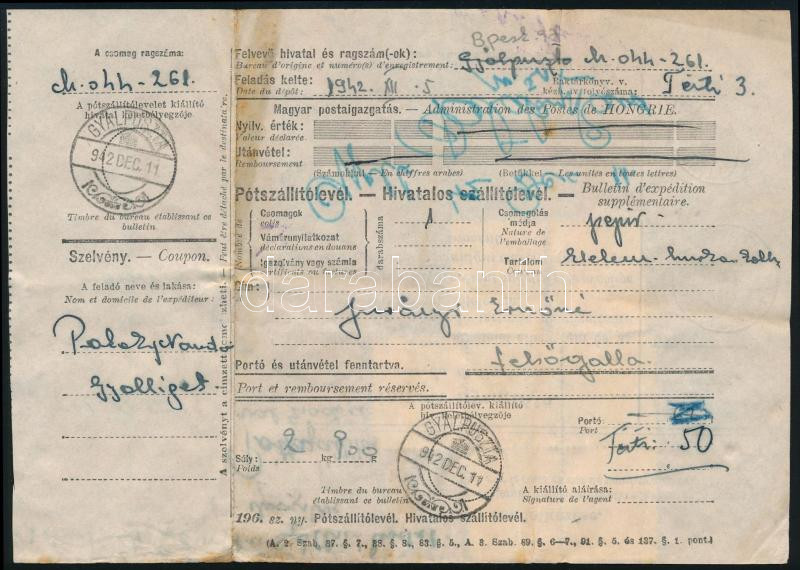 A csomag ragszáma:
A pótszállítólevelet kiállító
hivatal keletbélyegzője
GYÁLPUSZTA
942 DEC. 11
Timbre du bureau établissant ce
bulletin
Szelvény. — Coupon.
A feladó neve és lakása:
Nom et domicile de l'expéditeur:
Gyálliget
A szelvényt a címzett
Peut être détaché par le destinataire.
B.pest
Felvevő hivatal és ragszám(-ok): Gyálpuszta
Bureau d'origine et numéro(s) d'enregistrement:
Feladás kelte: 1942. XII. 5
Date du dépôt:
Tértí 3.
Magyar postaigazgatás. — Administration des Postes de HONGRIE.
Nyilv. érték:
Valeur déclarée
Utánvétel:
Remboursement
(Számokkal — En chiffres arabes) (Betűkkel — Les unités en toutes lettres)
Pótszállítólevél. — Hivatalos szállítólevél. — Bulletin d'expédition
supplémentaire.
Nombre de
Csomagok
colis
Vámárunyilatkozat
déclarations en douane
Igazolvány vagy számla
certificats ou factures
darabszáma
1
Csomagolás
módja
Nature de
l'emballage
Tartalom
Élelem
Ernőné
Felsőgalla
Portó és utánvétel fenntartva.
Port et remboursement réservés.
A pótszállítólev. kiállító
hiv. keletbélyegzője
GYÁLPUSZTA
942 DEC. 11
Portó:
Port
50
Súly: 2 kg 900 g
Poids
Timbre du bureau
établissant ce bulletin
A kiállító aláírása:
Signature de l'agent
196. sz. ny. Pótszállítólevél. Hivatalos szállítólevél.
(A. 2. Szab. 87. §. 7., 88. §. 8., 83. §. 5., A. 3. Szab. 89. §. 6—7., 91. §. 5. és 137. §. 1. pont.)
darabanth